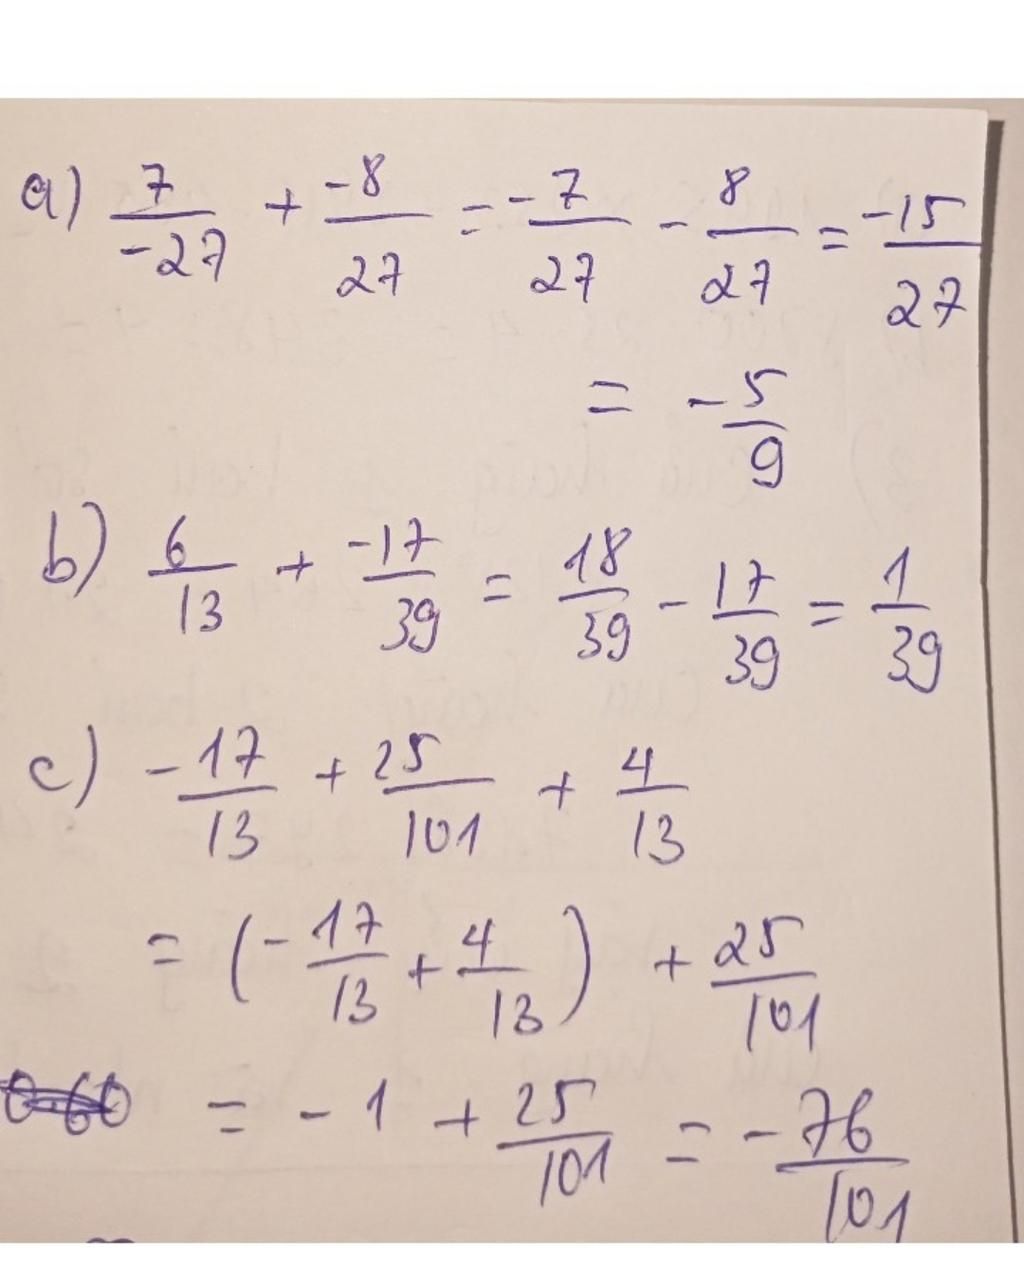 a) 7/-27 + -8/27 = -7/27 - 8/27 = -15/27
= -5/9
b) 6/13 + -17/39 = 18/39 - 17/39 = 1/39
c) -17/13 + 25/101 + 4/13
= (-17/13 + 4/13) + 25/101
= -1 + 25/101 = -76/101